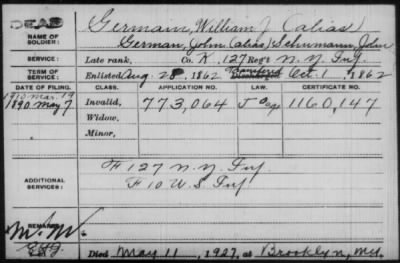 DEAD
Germain, William J (alias)
NAME OF SOLDIER: German, John (alias) Schumann, John
SERVICE: Late rank, Co. K, 127 Reg't N.Y. Inf.
TERM OF SERVICE: Enlisted Aug 28, 1862 Oct. 1, 1862
DATE OF FILING. CLASS. APPLICATION NO. LAW. CERTIFICATE NO.
1910 Mar. 19
1890 May 7 Invalid, 773,064 1160,147
Widow,
Minor,
ADDITIONAL SERVICES: F 127 N.Y. Inf
F 10 U.S. Inf
REMARKS:
M. M.
Died May 11, 1927, at Brooklyn, Md.